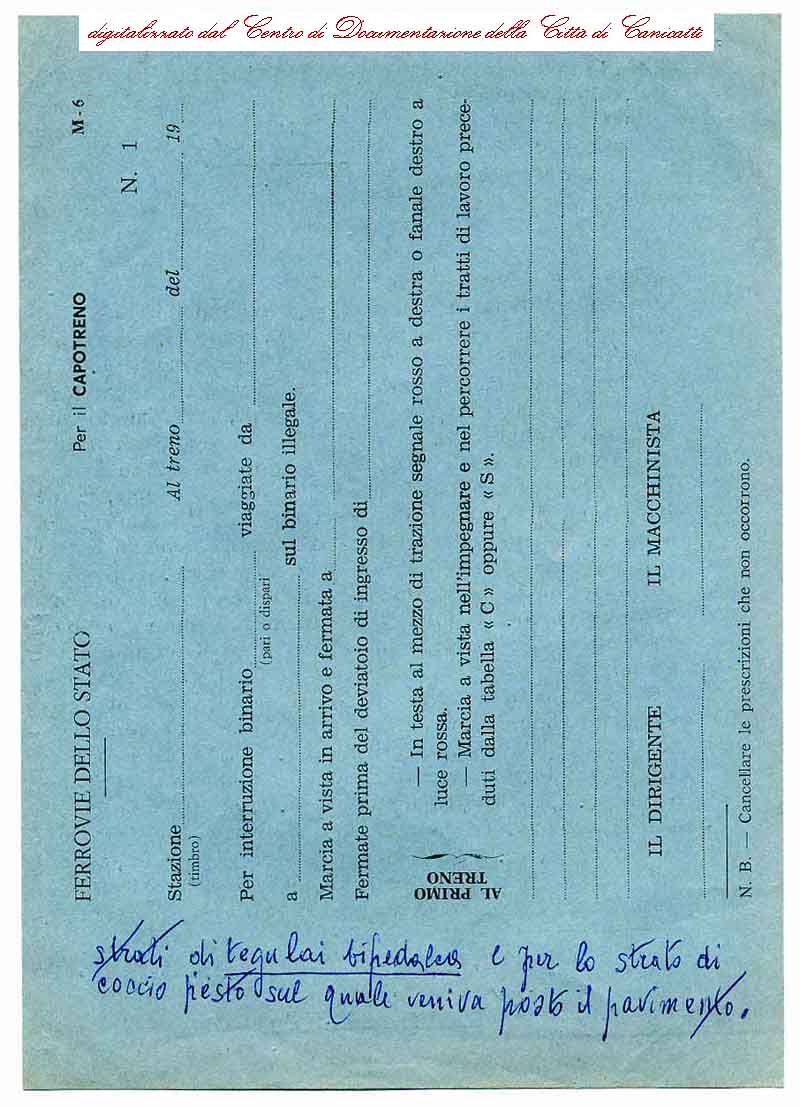 digitalizzato dal Centro di Documentazione della Città di Canicattì
FERROVIE DELLO STATO Per il CAPOTRENO M - 6
N. 1
Stazione Al treno del 19
(timbro)
Per interruzione binario viaggiate da
(pari o dispari
a sul binario illegale.
Marcia a vista in arrivo e fermata a
Fermate prima del deviatoio di ingresso di
AL PRIMO
TRENO
— In testa al mezzo di trazione segnale rosso a destra o fanale destro a
luce rossa.
— Marcia a vista nell'impegnare e nel percorrere i tratti di lavoro prece-
duti dalla tabella « C » oppure « S ».
IL DIRIGENTE IL MACCHINISTA
N. B. — Cancellare le prescrizioni che non occorrono.
strati di tegulai bipedalea e per lo strato di
coccio pesto sul quale veniva posto il pavimento.